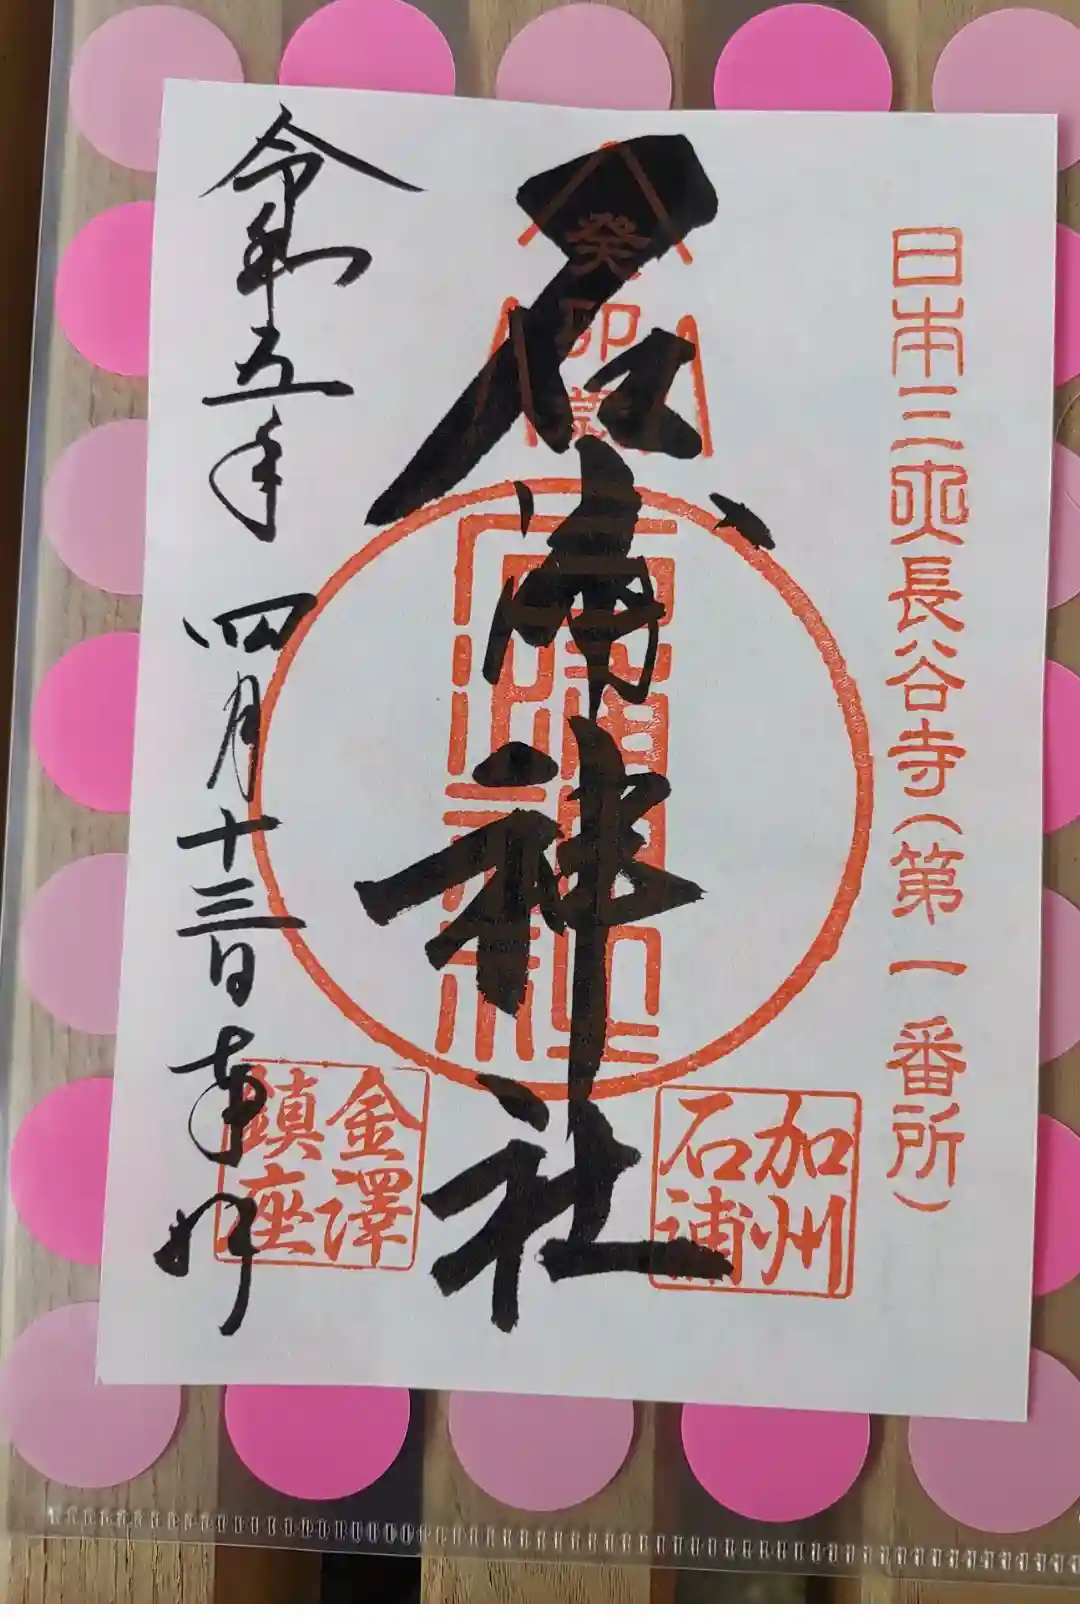 日本三所長谷寺(第一番所)
癸卯歳
石浦神社
石浦神社
加州
石浦
令和五年四月十三日奉拝
金澤
鎮座